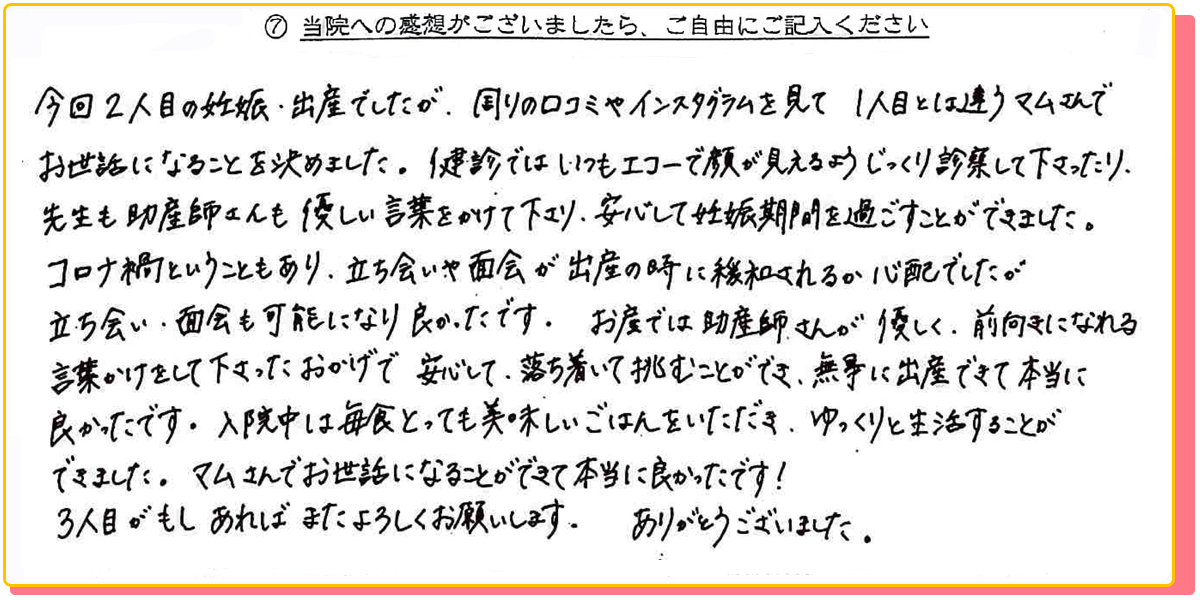 ⑦ 当院への感想がございましたら、ご自由にご記入ください
今回2人目の妊娠・出産でしたが、周りの口コミやインスタグラムを見て 1人目とは違うマムさんで
お世話になることを決めました。健診ではいつもエコーで顔が見えるようじっくり診察して下さったり、
先生も助産師さんも優しい言葉をかけて下さり、安心して妊娠期間を過ごすことができました。
コロナ禍ということもあり、立ち会いや面会が出産の時に緩和されるか心配でしたが
立ち会い・面会も可能になり良かったです。 お産では助産師さんが優しく、前向きになれる
言葉かけをして下さったおかげで 安心して、落ち着いて挑むことができ、無事に出産できて本当に
良かったです。入院中は毎食とっても美味しいごはんをいただき、ゆっくりと生活することが
できました。マムさんでお世話になることができて本当に良かったです!
3人目がもしあればまたよろしくお願いします。 ありがとうございました。